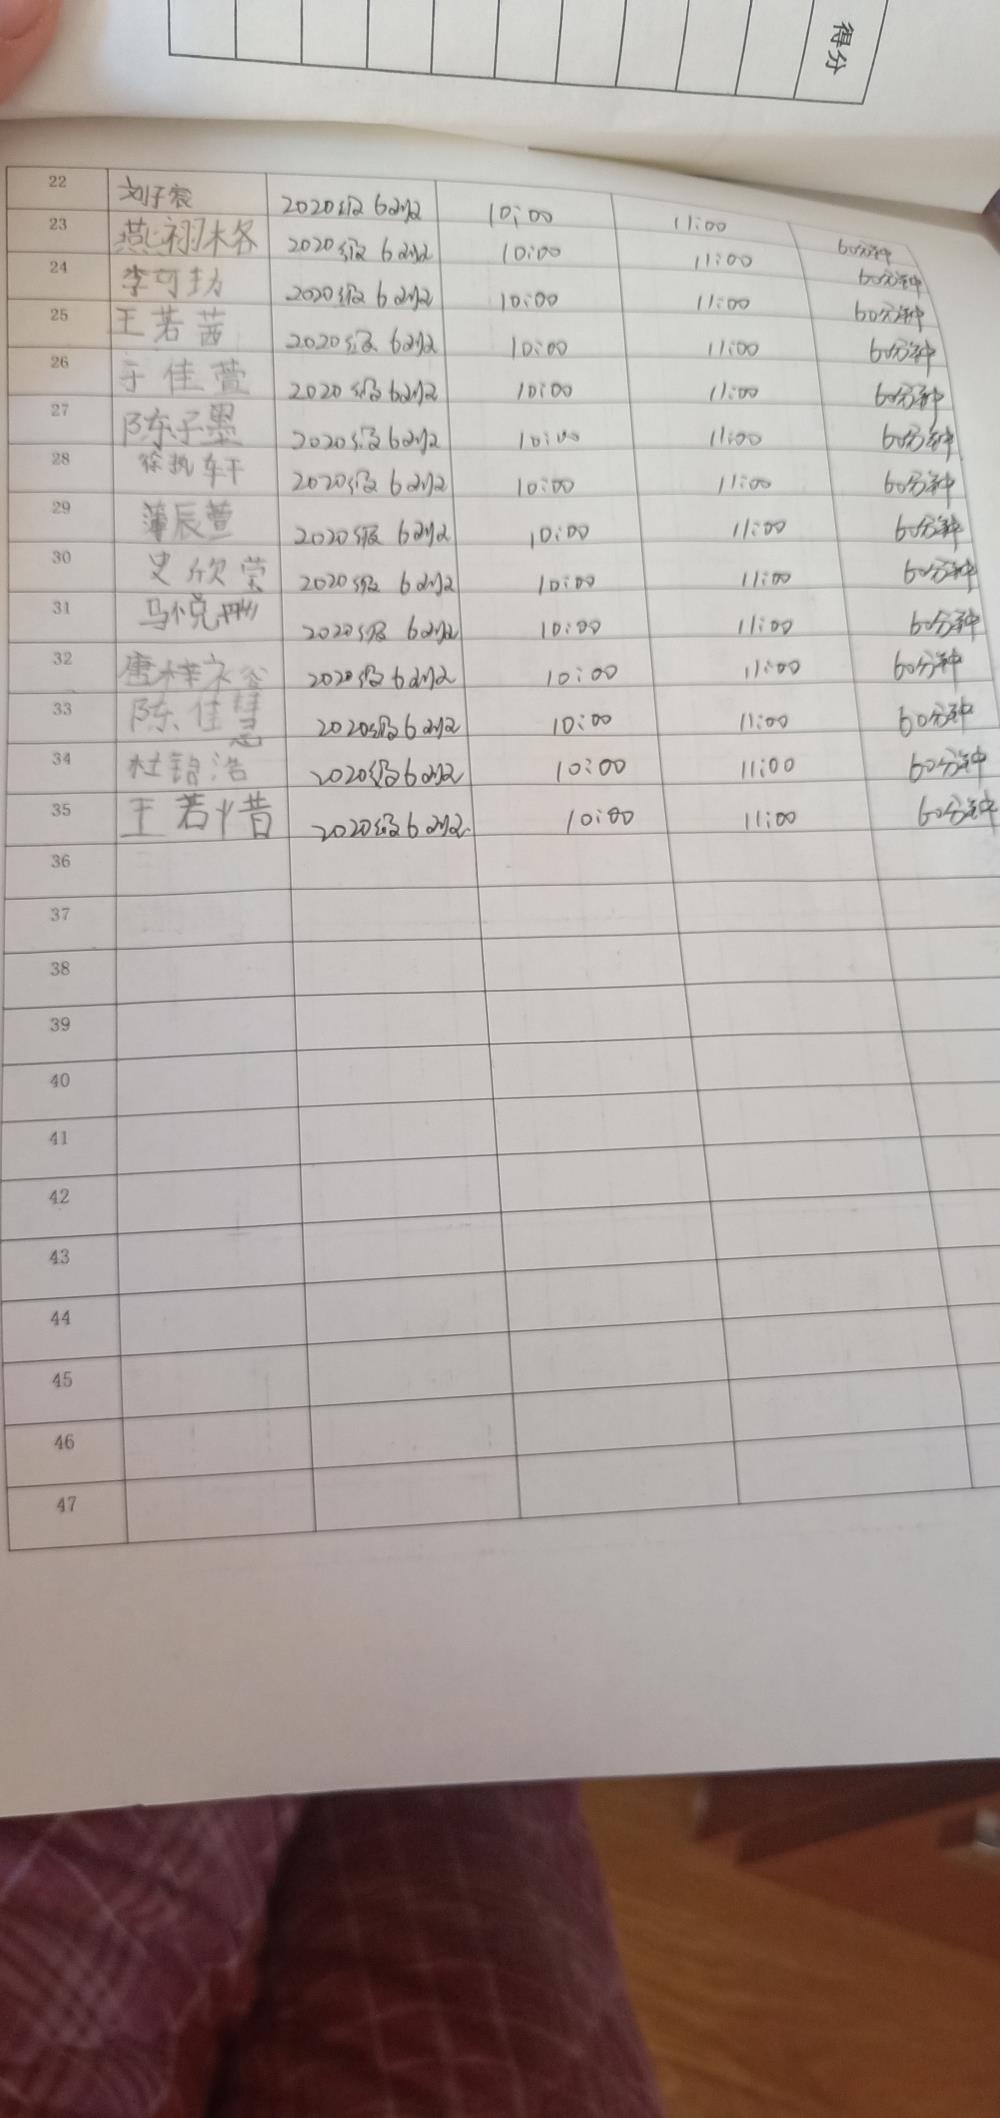 得分
22 刘子宸 2020级6班 10:00 11:00 60分钟
23 燕翊格 2020级6班 10:00 11:00 60分钟
24 李可 2020级6班 10:00 11:00 60分钟
25 王若茜 2020级6班 10:00 11:00 60分钟
26 于佳萱 2020级6班 10:00 11:00 60分钟
27 陈子墨 2020级6班 10:00 11:00 60分钟
28 徐执轩 2020级6班 10:00 11:00 60分钟
29 蒲辰萱 2020级6班 10:00 11:00 60分钟
30 史欣荣 2020级6班 10:00 11:00 60分钟
31 马悦珊 2020级6班 10:00 11:00 60分钟
32 唐梓裕 2020级6班 10:00 11:00 60分钟
33 陈佳慧 2020级6班 10:00 11:00 60分钟
34 杜铭浩 2020级6班 10:00 11:00 60分钟
35 王若惜 2020级6班 10:00 11:00 60分钟
36
37
38
39
40
41
42
43
44
45
46
47